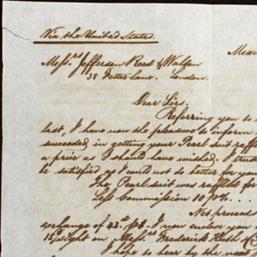 Via the United States.
Mexi
Mess.rs Jefferson Reed & Walter
38 Fetter Lane. London.
Dear Sirs.
Referring you to
last, I have now the pleasure to inform
succeeded in getting your Pearl suit raff
a price as I should have wished. I trust
be satisfied as I could not do better for you
The Pearl suit was raffled for
Less Commission 10%
Net proceeds
exchange of 43 I now enclose you
15 d/sight on Mess.rs Frederick Huth & C
I hope to hear by the next